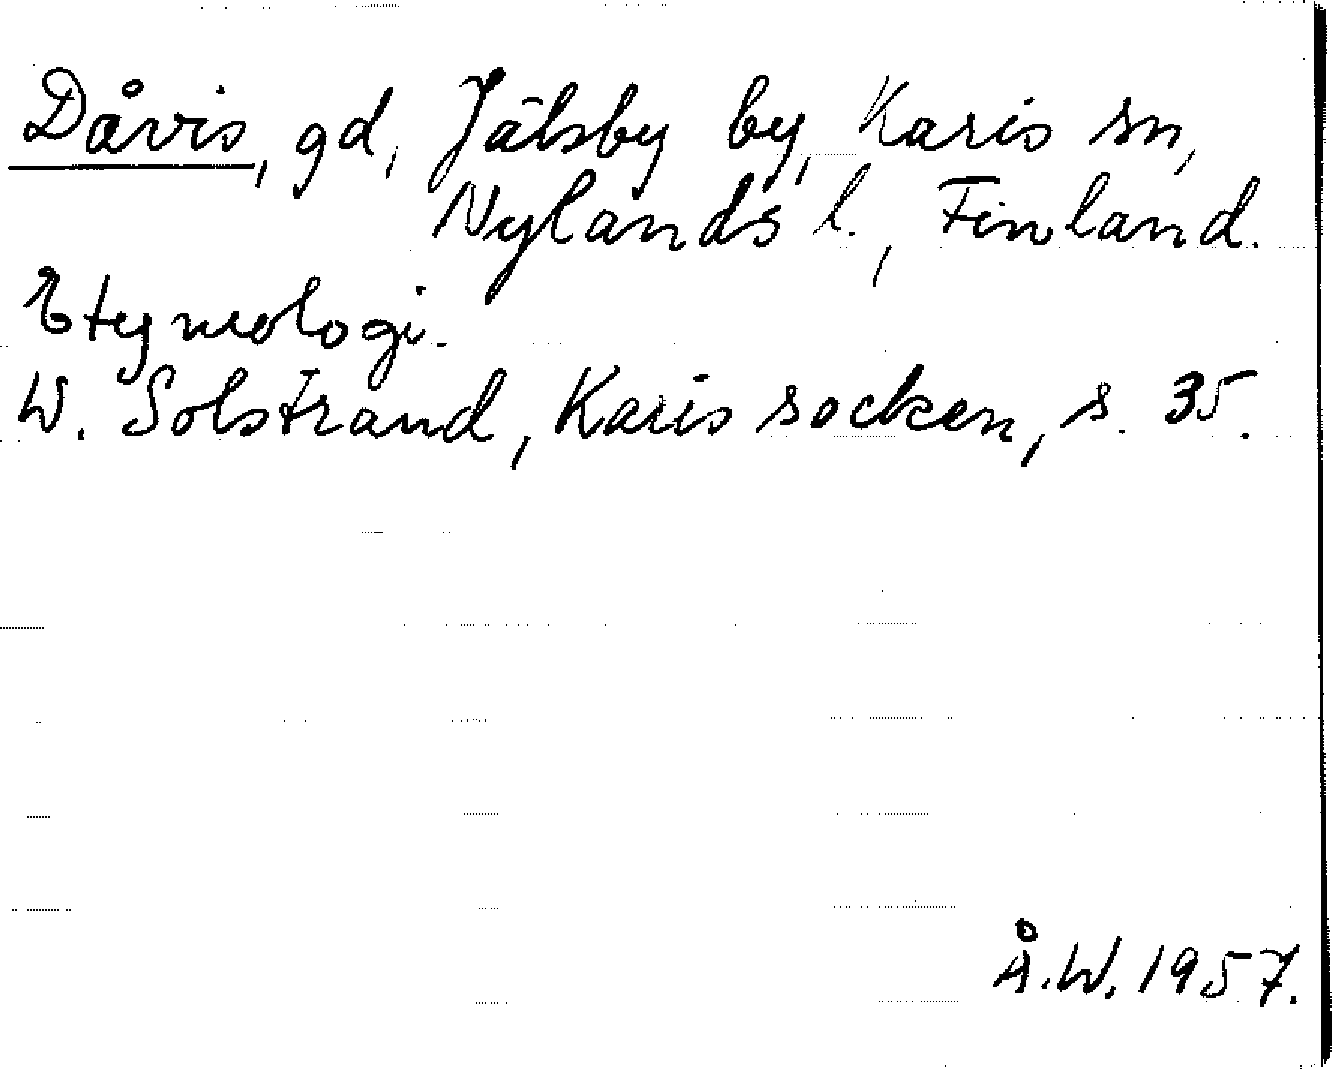 Dåvis, gd, Jälsby by, Karis sn,
Nylands l., Finland.
Etymologi.
W. Solstrand, Karis socken, s. 35.
Å.W. 1957.